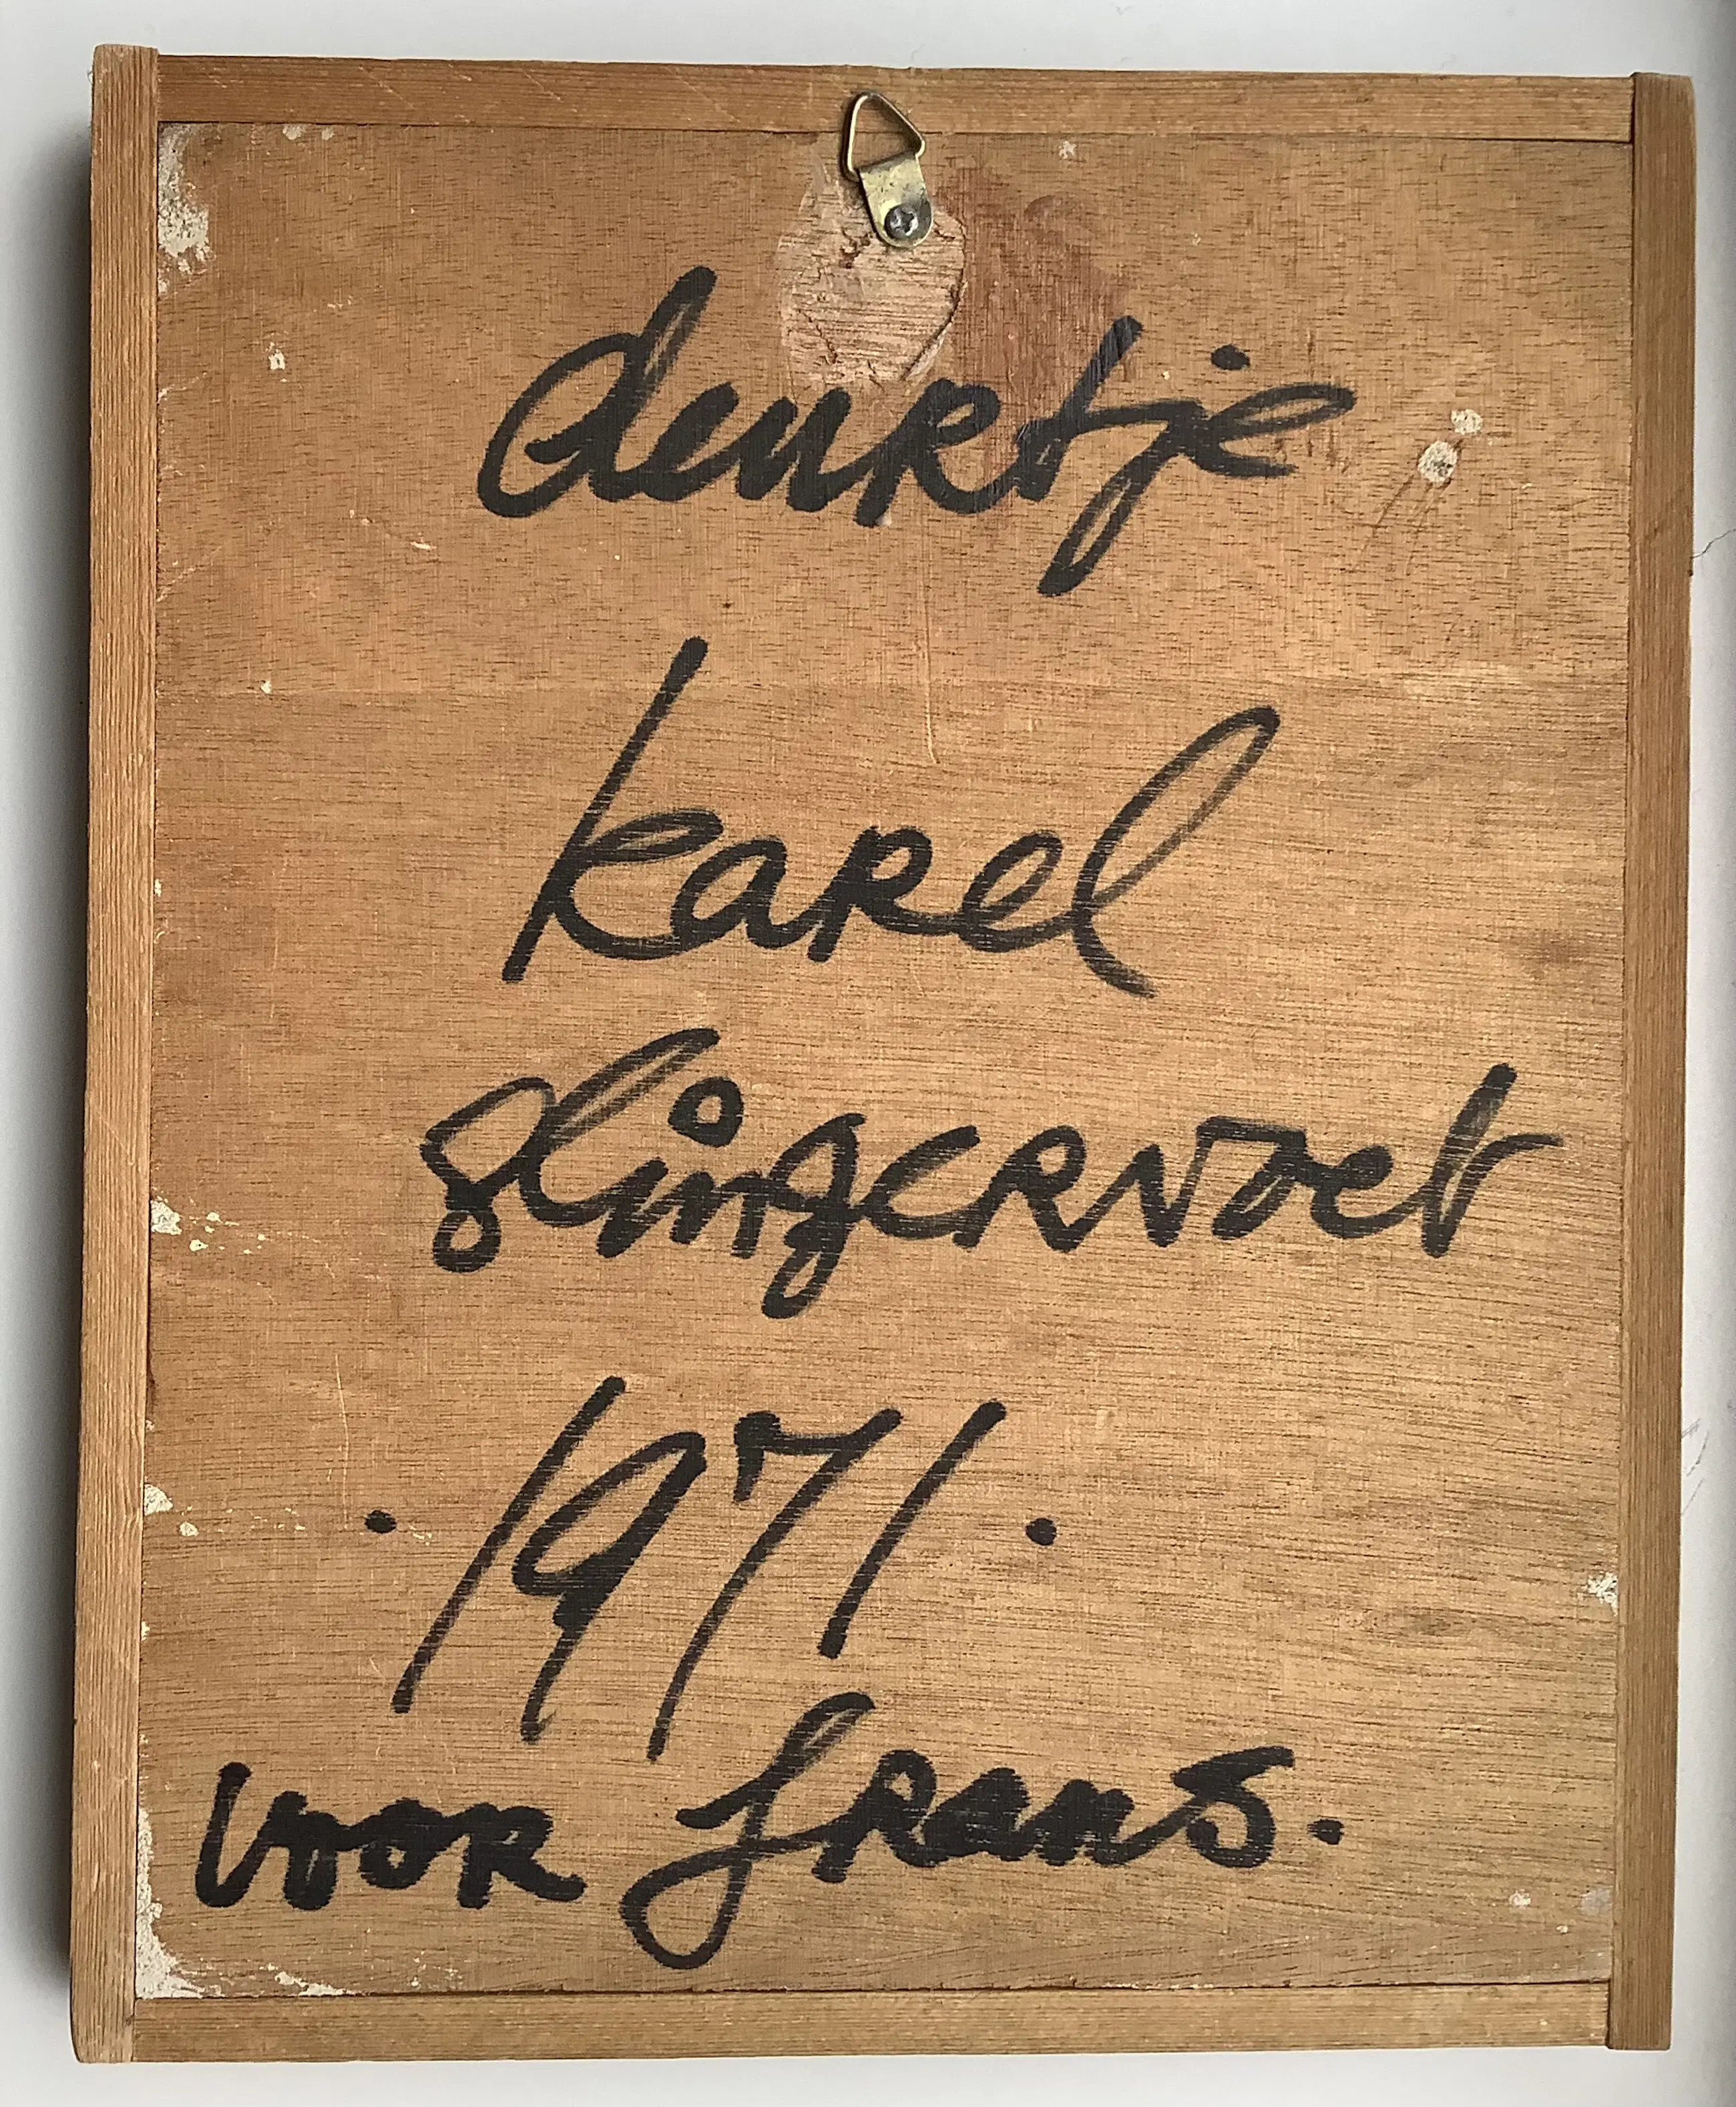 deurtje
karel
slingervoet
. 1971 .
voor frans.